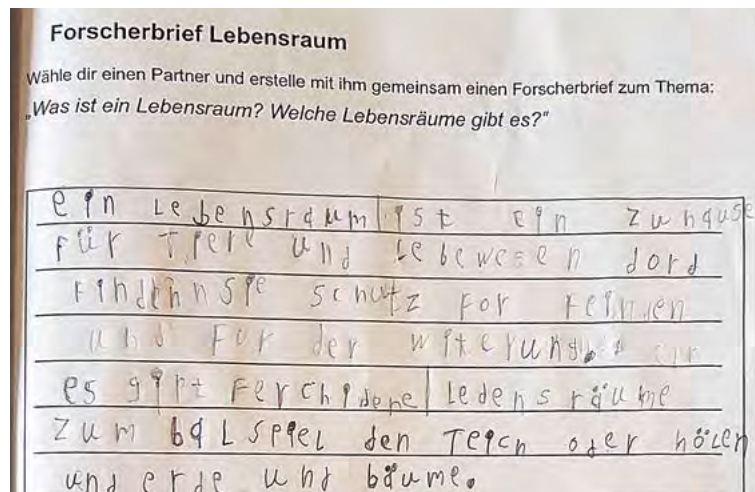 Forscherbrief Lebensraum
Wähle dir einen Partner und erstelle mit ihm gemeinsam einen Forscherbrief zum Thema:
„Was ist ein Lebensraum? Welche Lebensräume gibt es?“
ein Lebensraum ist ein Zuhause
Für Tiere und Lebewesen dord
Findehn sie schutz For Feinden
und For der witerung.
es gipt Ferchidene Ledensräume
Zum baLspiel den Teich oder hölen
und erde und bäume.